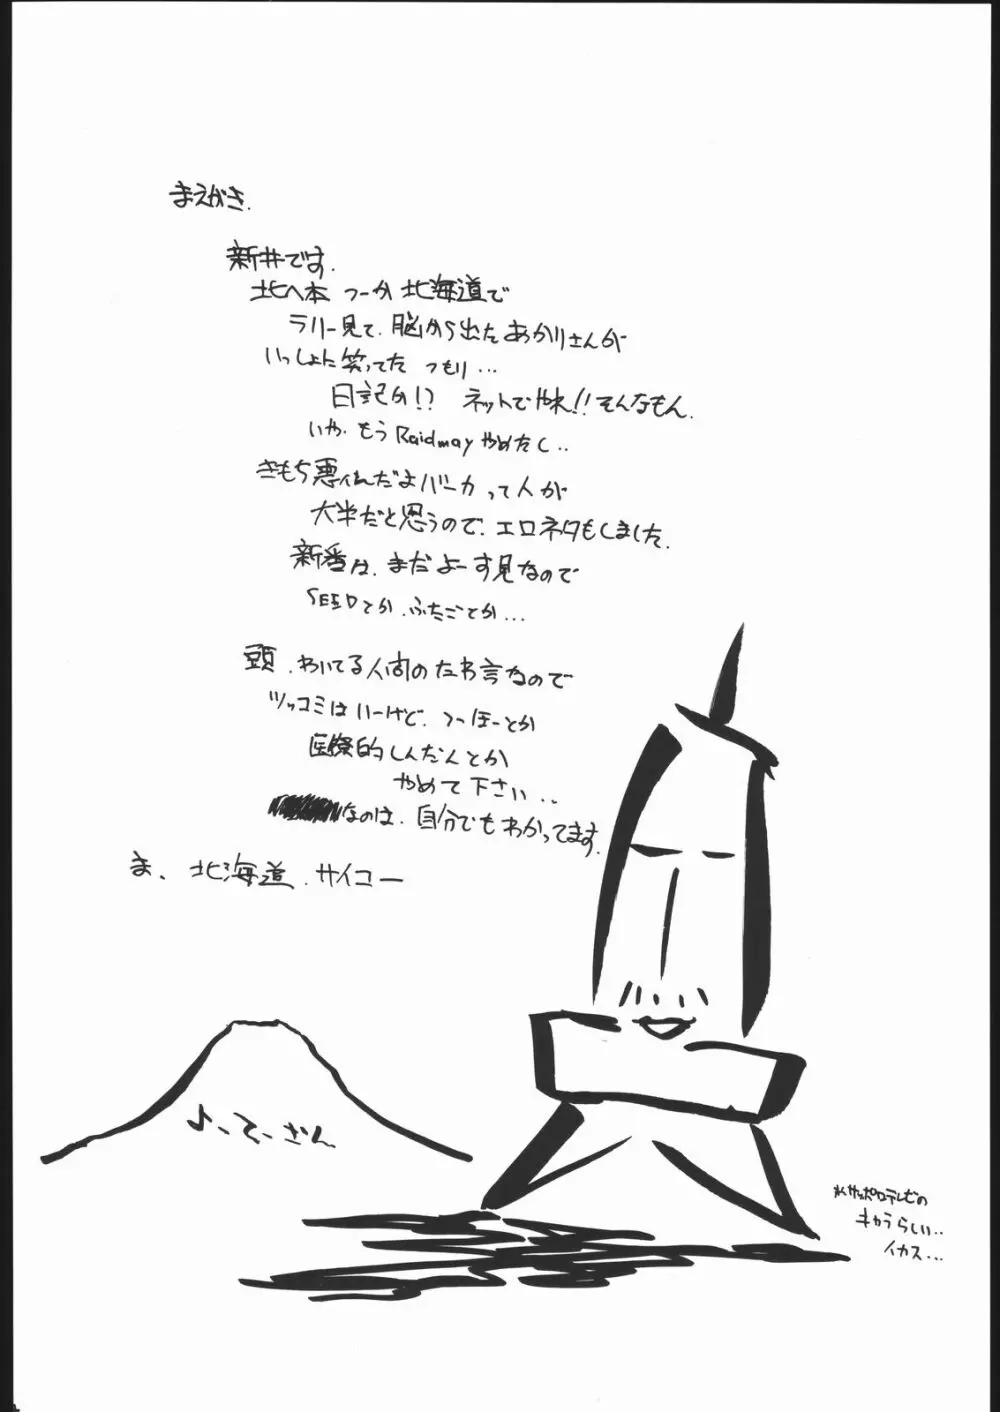 まえがき.
新井です.
北へ本 つーか 北海道で
ラリー見て、脳から出たあかりさんが
いっしょに笑ってた つもり…
日記か!? ネットでやれ!! そんなもん.
いや、もう Raidmay やめたし..
きもち悪いんだよバーカ って人が
大半だと思うので、エロネタもしました.
新番は、まだよーす見なので
SEEDとか、ふたごとか...
頭、わいてる人間のたわ言なので
ツッコミはいーけど、つーほーとか
医療的しんだんとか
やめて下さい..
なのは、自分でもわかってます.
ま、北海道、サイコー
よーてーさん
※サッポロテレビの
キャラらしい..
イカス...